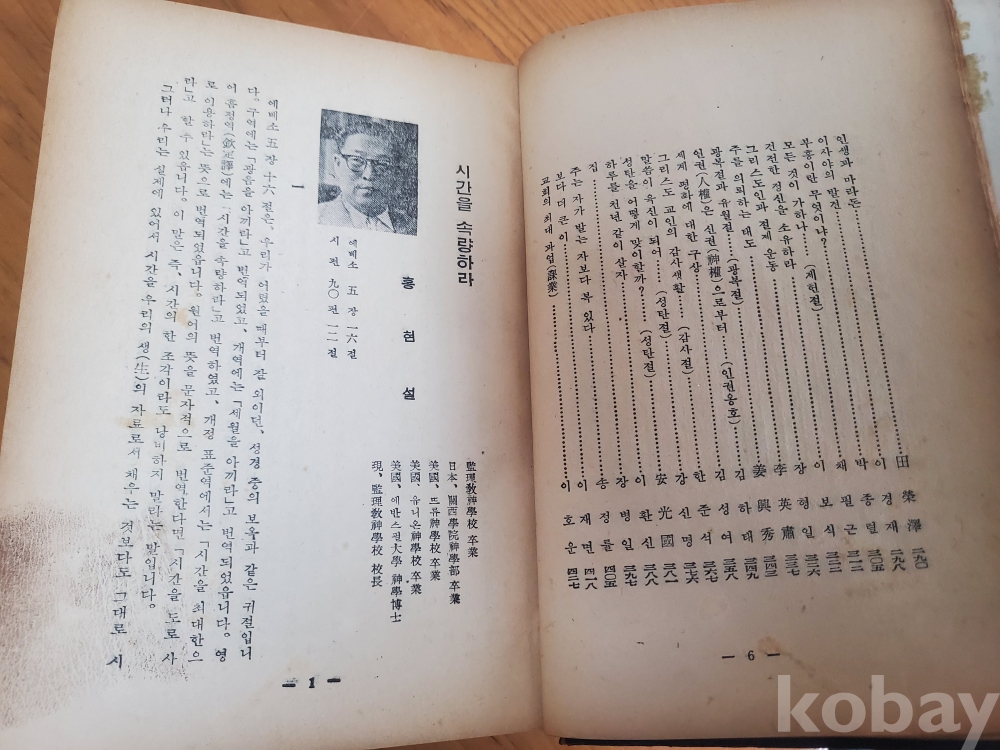 인생과 마라톤 田榮澤 一九〇
이사야의 발견 이경재 一九八
부흥이란 무엇이냐? 박종렬 二〇五
모든 것이 가하나 (제헌절) 채필근
건전한 정신을 소유하라 이보식
그리스도인과 절제 운동 장형일
주를 의뢰하는 태도 李英肅
광복절과 유월절 (광복절) 姜興秀
인권(人權)은 신권(神權)으로부터 (인권옹호) 김하태
세계 평화에 대한 구상 김성여
그리스도 교인의 감사생활 (감사절) 한준석
말씀이 육신이 되어 (성탄절) 강신명
성탄을 어떻게 맞이할까? (성탄절) 安光國
하루를 천년 같이 살자 이환신
집 장병일
주는 자가 받는 자보다 복 있다 송정률
보다 더 큰 이 이재면
교회의 최대 과업(課業) 이호운
— 6 —
시간을 속량하라
홍현설
에베소 五장 一六절
시편 九〇편 一二절
監理敎神學校 卒業
日本、關西學院神學部 卒業
美國、뜨류神學校 卒業
美國、유니온神學校 卒業
美國、에반스턴大學 神學博士
現、監理敎神學校 校長
一
에베소 五장 十六절은、우리가 어렸을 때부터 잘 외이던、성경 중의 보옥과 같은 귀절입니
다。구역에는「광음을 아끼라」고 번역되었고、개역에는「세월을 아끼라」고 번역되었읍니다。영
어 흠정역(欽定譯)에는「시간을 속량하라」고 번역하였고、개정 표준역에서는「시간을 최대한으
로 이용하라」는 뜻으로 번역되었읍니다。원어의 뜻을 문자적으로 번역한다면「시간을 도로 사
라」고 할 수 있읍니다。이 말은 즉、시간의 한 조각이라도 낭비하지 말라는 말입니다。
그러나 우리는 실제에 있어서 시간을 우리의 생(生)의 자료로서 채우는 것보다도 그대로 시
— 1 —
kobay